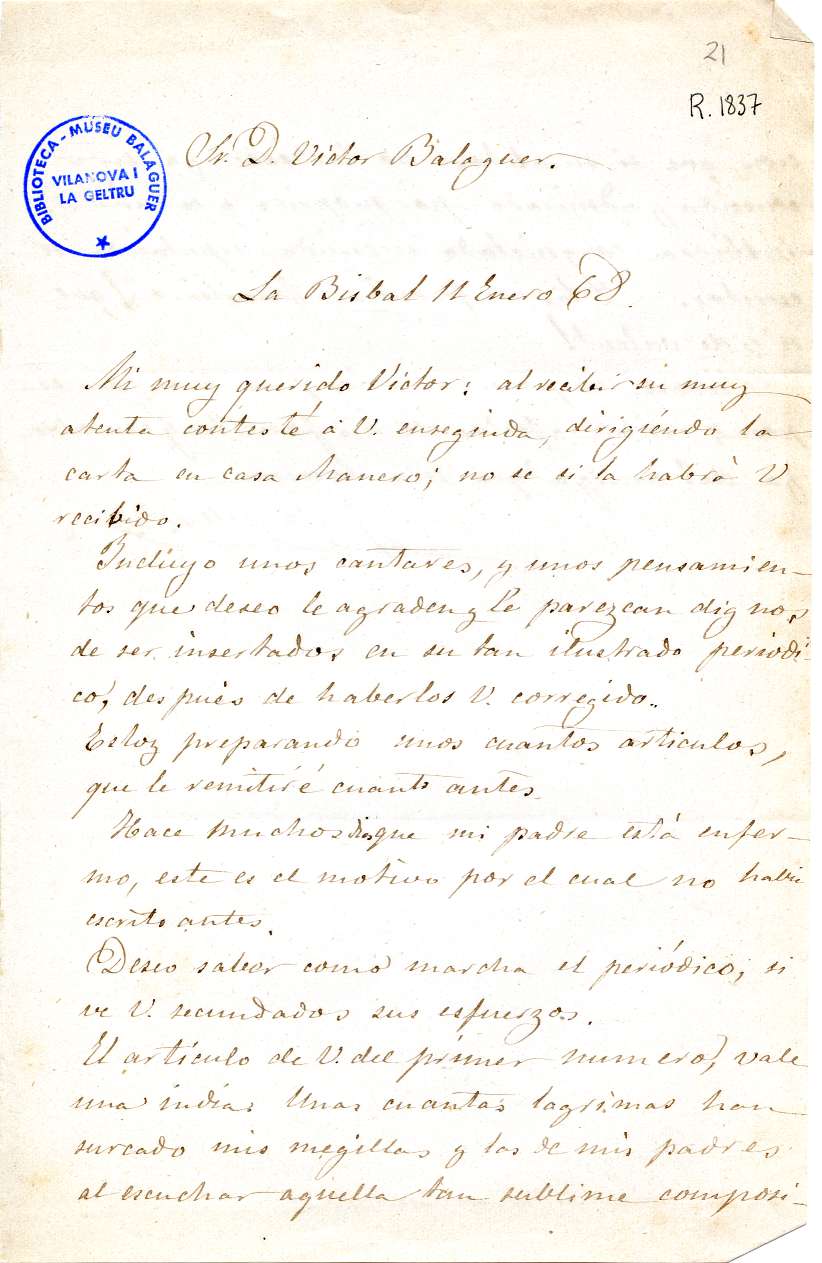 21
R. 1837
BIBLIOTECA - MUSEU BALAGUER
VILANOVA I
LA GELTRU
Sr. D. Victor Balaguer.
La Bisbal 11 Enero 68.
Mi muy querido Victor: al recibir su muy
atenta contesté á V. enseguida, dirigiéndo la
carta en casa Manero; no se si la habrá V
recibido.
Incluyo unos cantares, y unos pensamien-
tos que deseo le agraden y le parezcan dignos
de ser insertados en su tan ilustrado periodi-
co, después de haberlos V. corregido.
Estoy preparando unos cuantos articulos,
que le remitiré cuanto antes.
Hace muchos dias que mi padre está enfer-
mo, este es el motivo por el cual no habia
escrito antes.
Deseo saber como marcha el periódico; si
ve V. secundados sus esfuerzos.
El artículo de V. del primer numero, vale
una india. Unas cuantas lagrimas han
surcado mis megillas y las de mis padres
al escuchar aquella tan sublime composi-